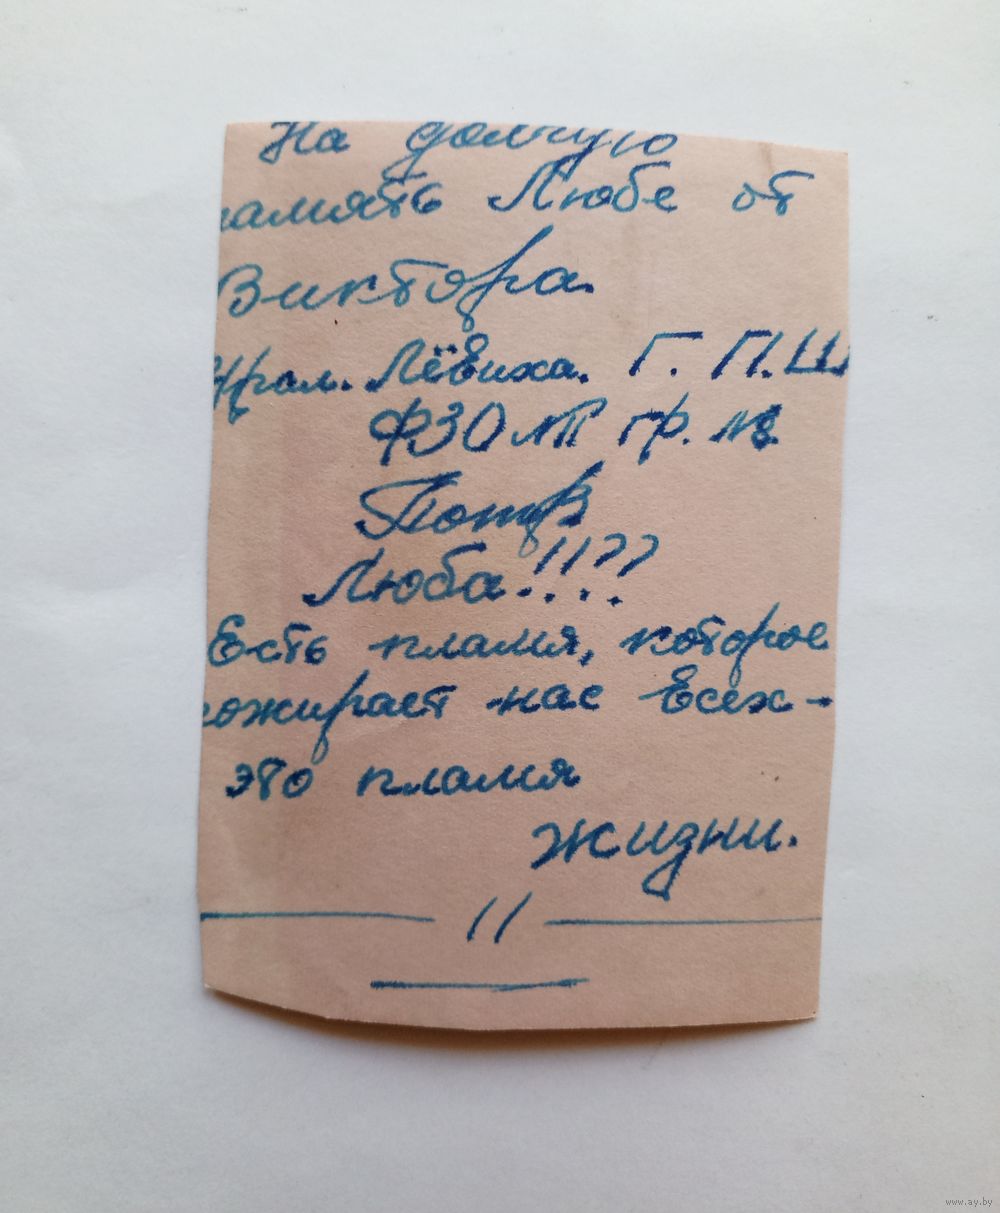 На долгую
память Любе от
Виктора.
Урал. Лёвиха. Г. П. Ш
ФЗО №  гр. №
Люба!!??
Есть пламя, которое
пожирает нас Всех -
это пламя
жизни.
11
www.ay.by